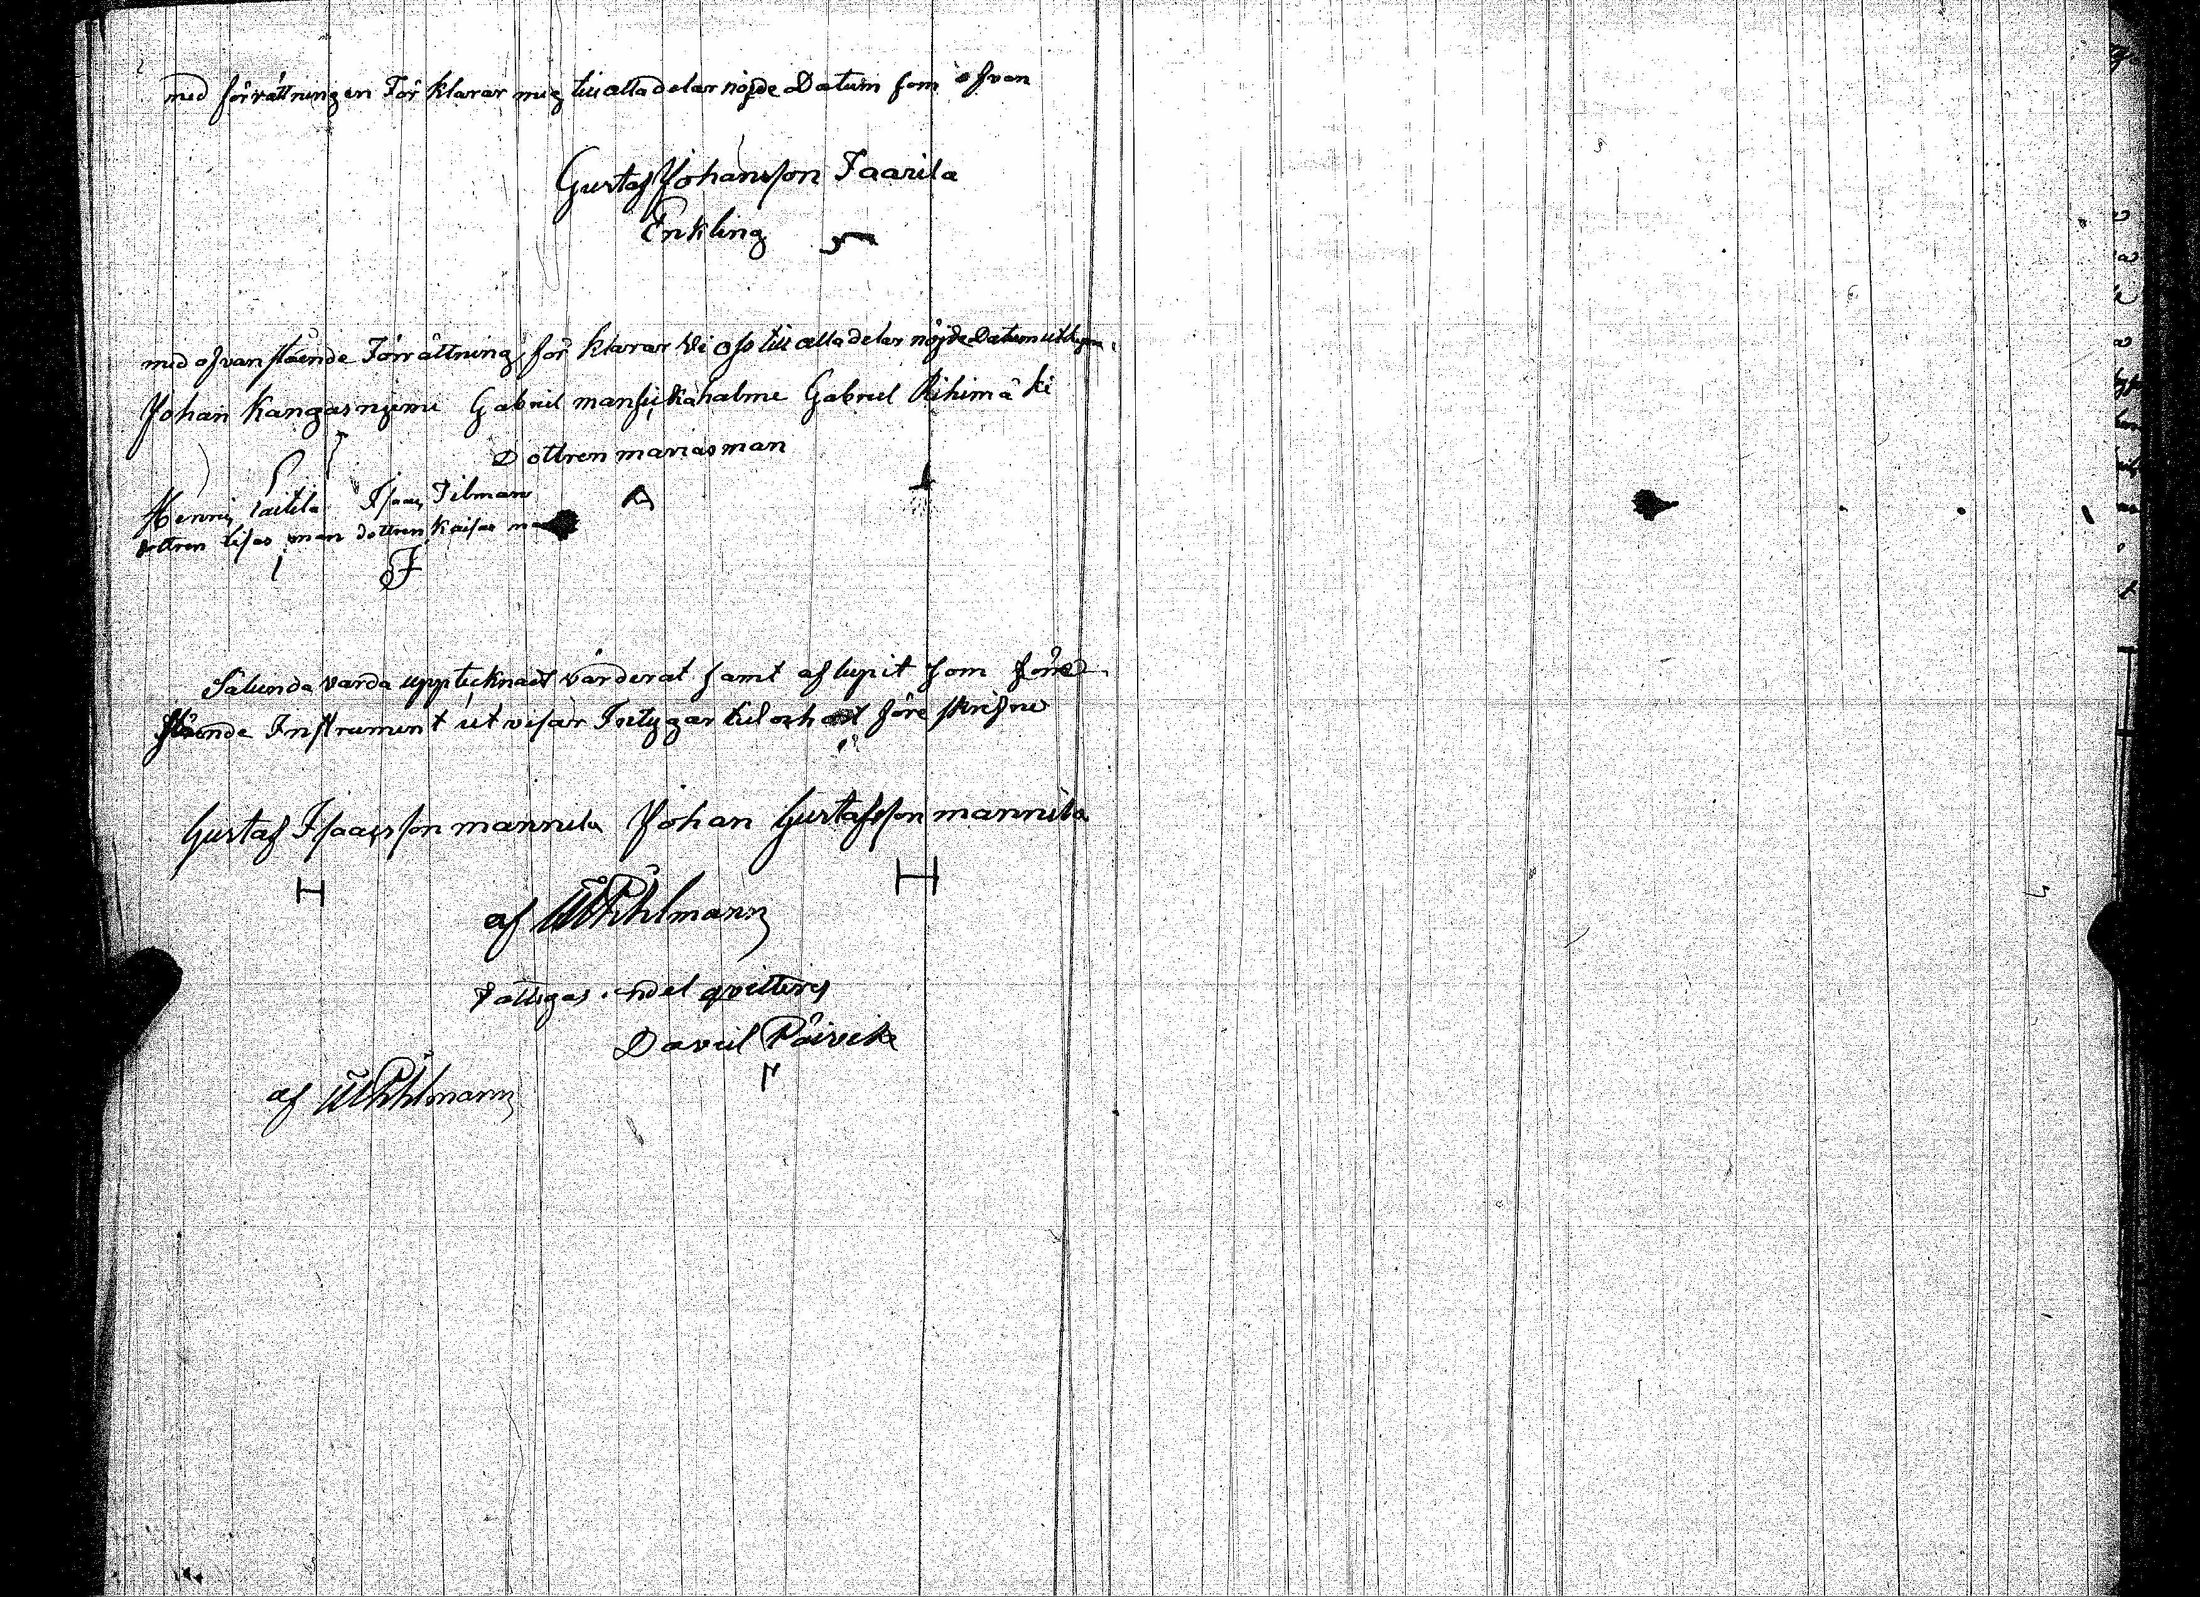 med förrättningen För klarar mig till alla delar nöjde Datum som ofvan
Gustaf Johansson Taarila
Enkling
med ofvanstående Förrättning för klarar Vi oss till alla delar nöjde Datum
Johan Kangasnjemi Gabriel mansickahalme Gabriel Rihimäki
Dottren marias man
Henric Laitila Isaac Tilman
dottren Lisas man dottren Kaisas
Sålunda varda uppteknadt värderat samt aflupit som före
stående Instrument utvisar Intygar tid och före skrifne
Gustaf Isaacsson mannila Johan Gustafsson mannila
H H
af
Fattigas andel qvitteres
David Päivike
af